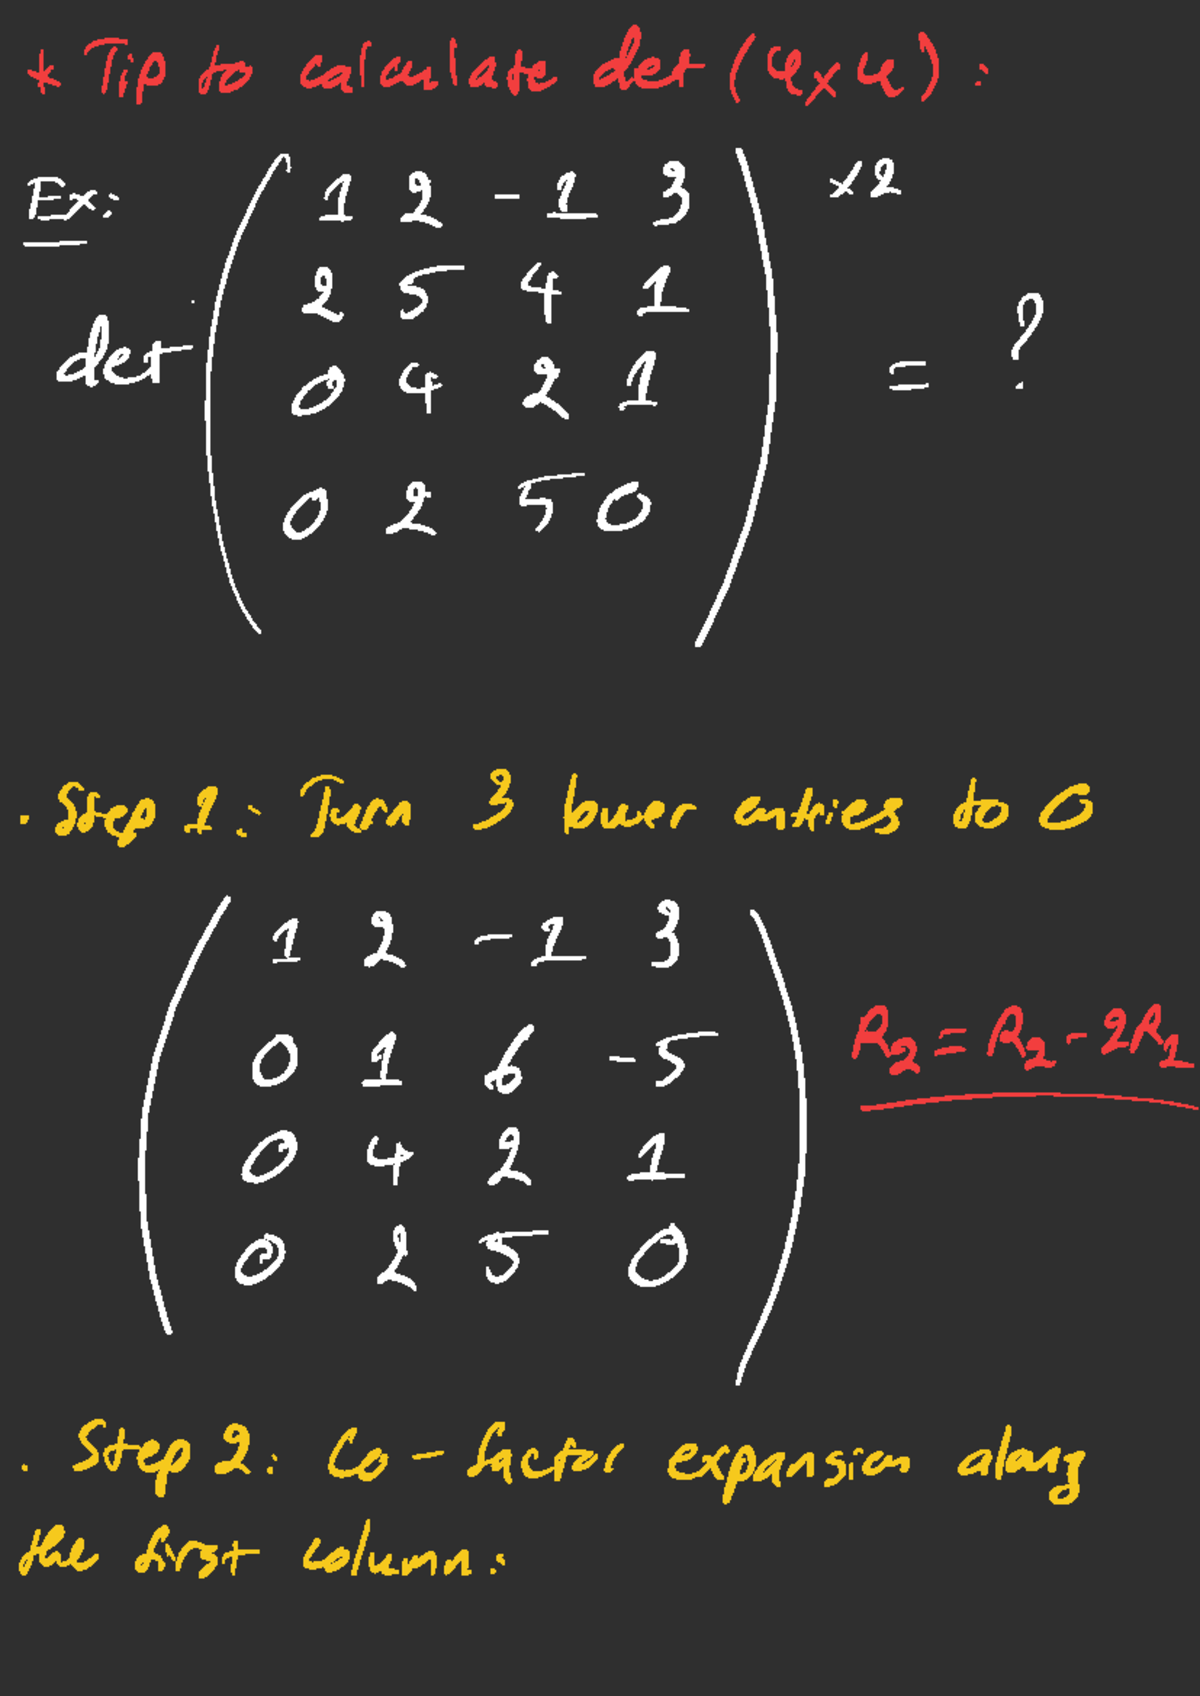 * Tip to calculate det (4x4):
Ex:
1 2 -1 3 x2
2 5 4 1
det = ?
0 4 2 1
0 2 5 0
. Step 1: Turn 3 lower entries to 0
1 2 -1 3
0 1 6 -5 R2 = R2 - 2R1
0 4 2 1
0 2 5 0
. Step 2: Co-factor expansion along
the first column: